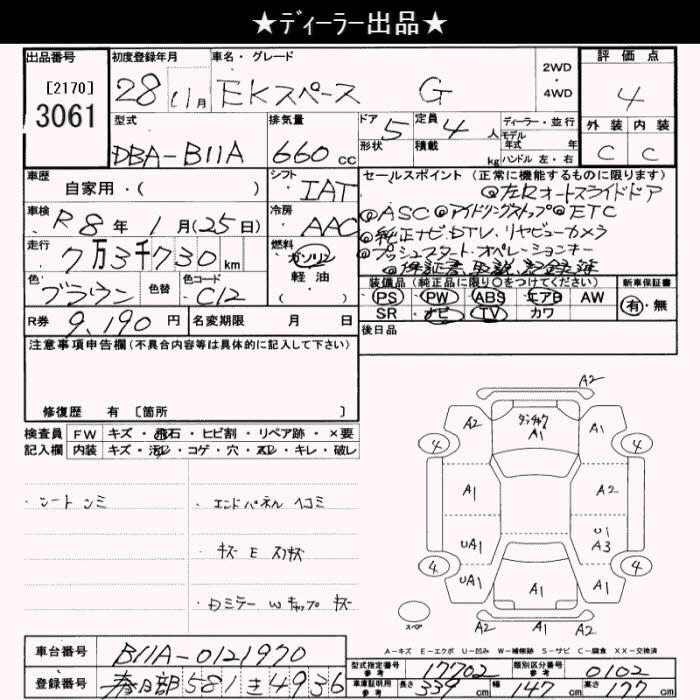 ★ディーラー出品★
出品番号 初度登録年月 車名・グレード 2WD・4WD 評価点
[2170] 3061 28 11月 EKスペース G 4
型式 排気量 ドア 5 定員 4人 ディーラー・並行 外装 内装
モデル年式 年
DBA-B11A 660cc 形状 積載 kg ハンドル 左・右 C C
車歴 シフト セールスポイント (正常に機能するものに限ります)
自家用・( ) IAT ◎左Rオートスライドドア
車検 R8年1月(25日) 冷房 AAC ◎ASC◎アイドリングストップ◎ETC
走行 燃料 ◎純正ナビ・DTV、リヤビューカメラ
7万3千730km ガソリン ◎プッシュスタート・オペレーションキー
色 色替 色コード 軽油 ◎保証書、取説、記録簿
ブラウン C12 ( ) 装備品 (純正品に限り○をつけてください) 新車保証書
PS PW ABS エアB AW 有・無
R券 9,190円 名変期限 月 日 SR ナビ TV カワ
注意事項申告欄 (不具合内容等は具体的に記入して下さい) 後日品
修復歴 有 [箇所 ]
検査員 FW キズ・飛石・ヒビ割・リペア跡・×要
記入欄 内装 キズ・汚れ・コゲ・穴・ ・キレ・破レ
・シートシミ ・エンドパネル ヘコミ
・キズ E スリキズ
・Dミラー W キャップ キズ
A2
A2 A1 A1
4 4
A1 A2
UA1 U1 A3
4 4
UA1 A1 A1
スペア A2 A2
A-キズ E-エクボ U-凹み W-補修跡 S-サビ C-腐食 XX-交換済
車台番号 B11A-0121970 型式指定番号 参考 17702 類別区分番号 参考 0102
登録番号 春日部 581 き 4936 車庫証明用 参考 長さ 339cm 幅 147cm 高さ 177cm